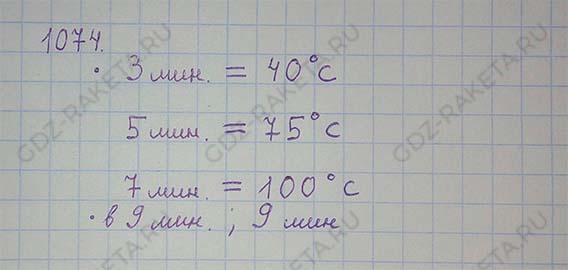 1074.
• 3 мин. = 40°C
5 мин. = 75°C
7 мин. = 100°C
• в 9 мин. ; 9 мин
GDZ-RAKETA.RU
GDZ-RAKETA.RU
GDZ-RAKETA.RU